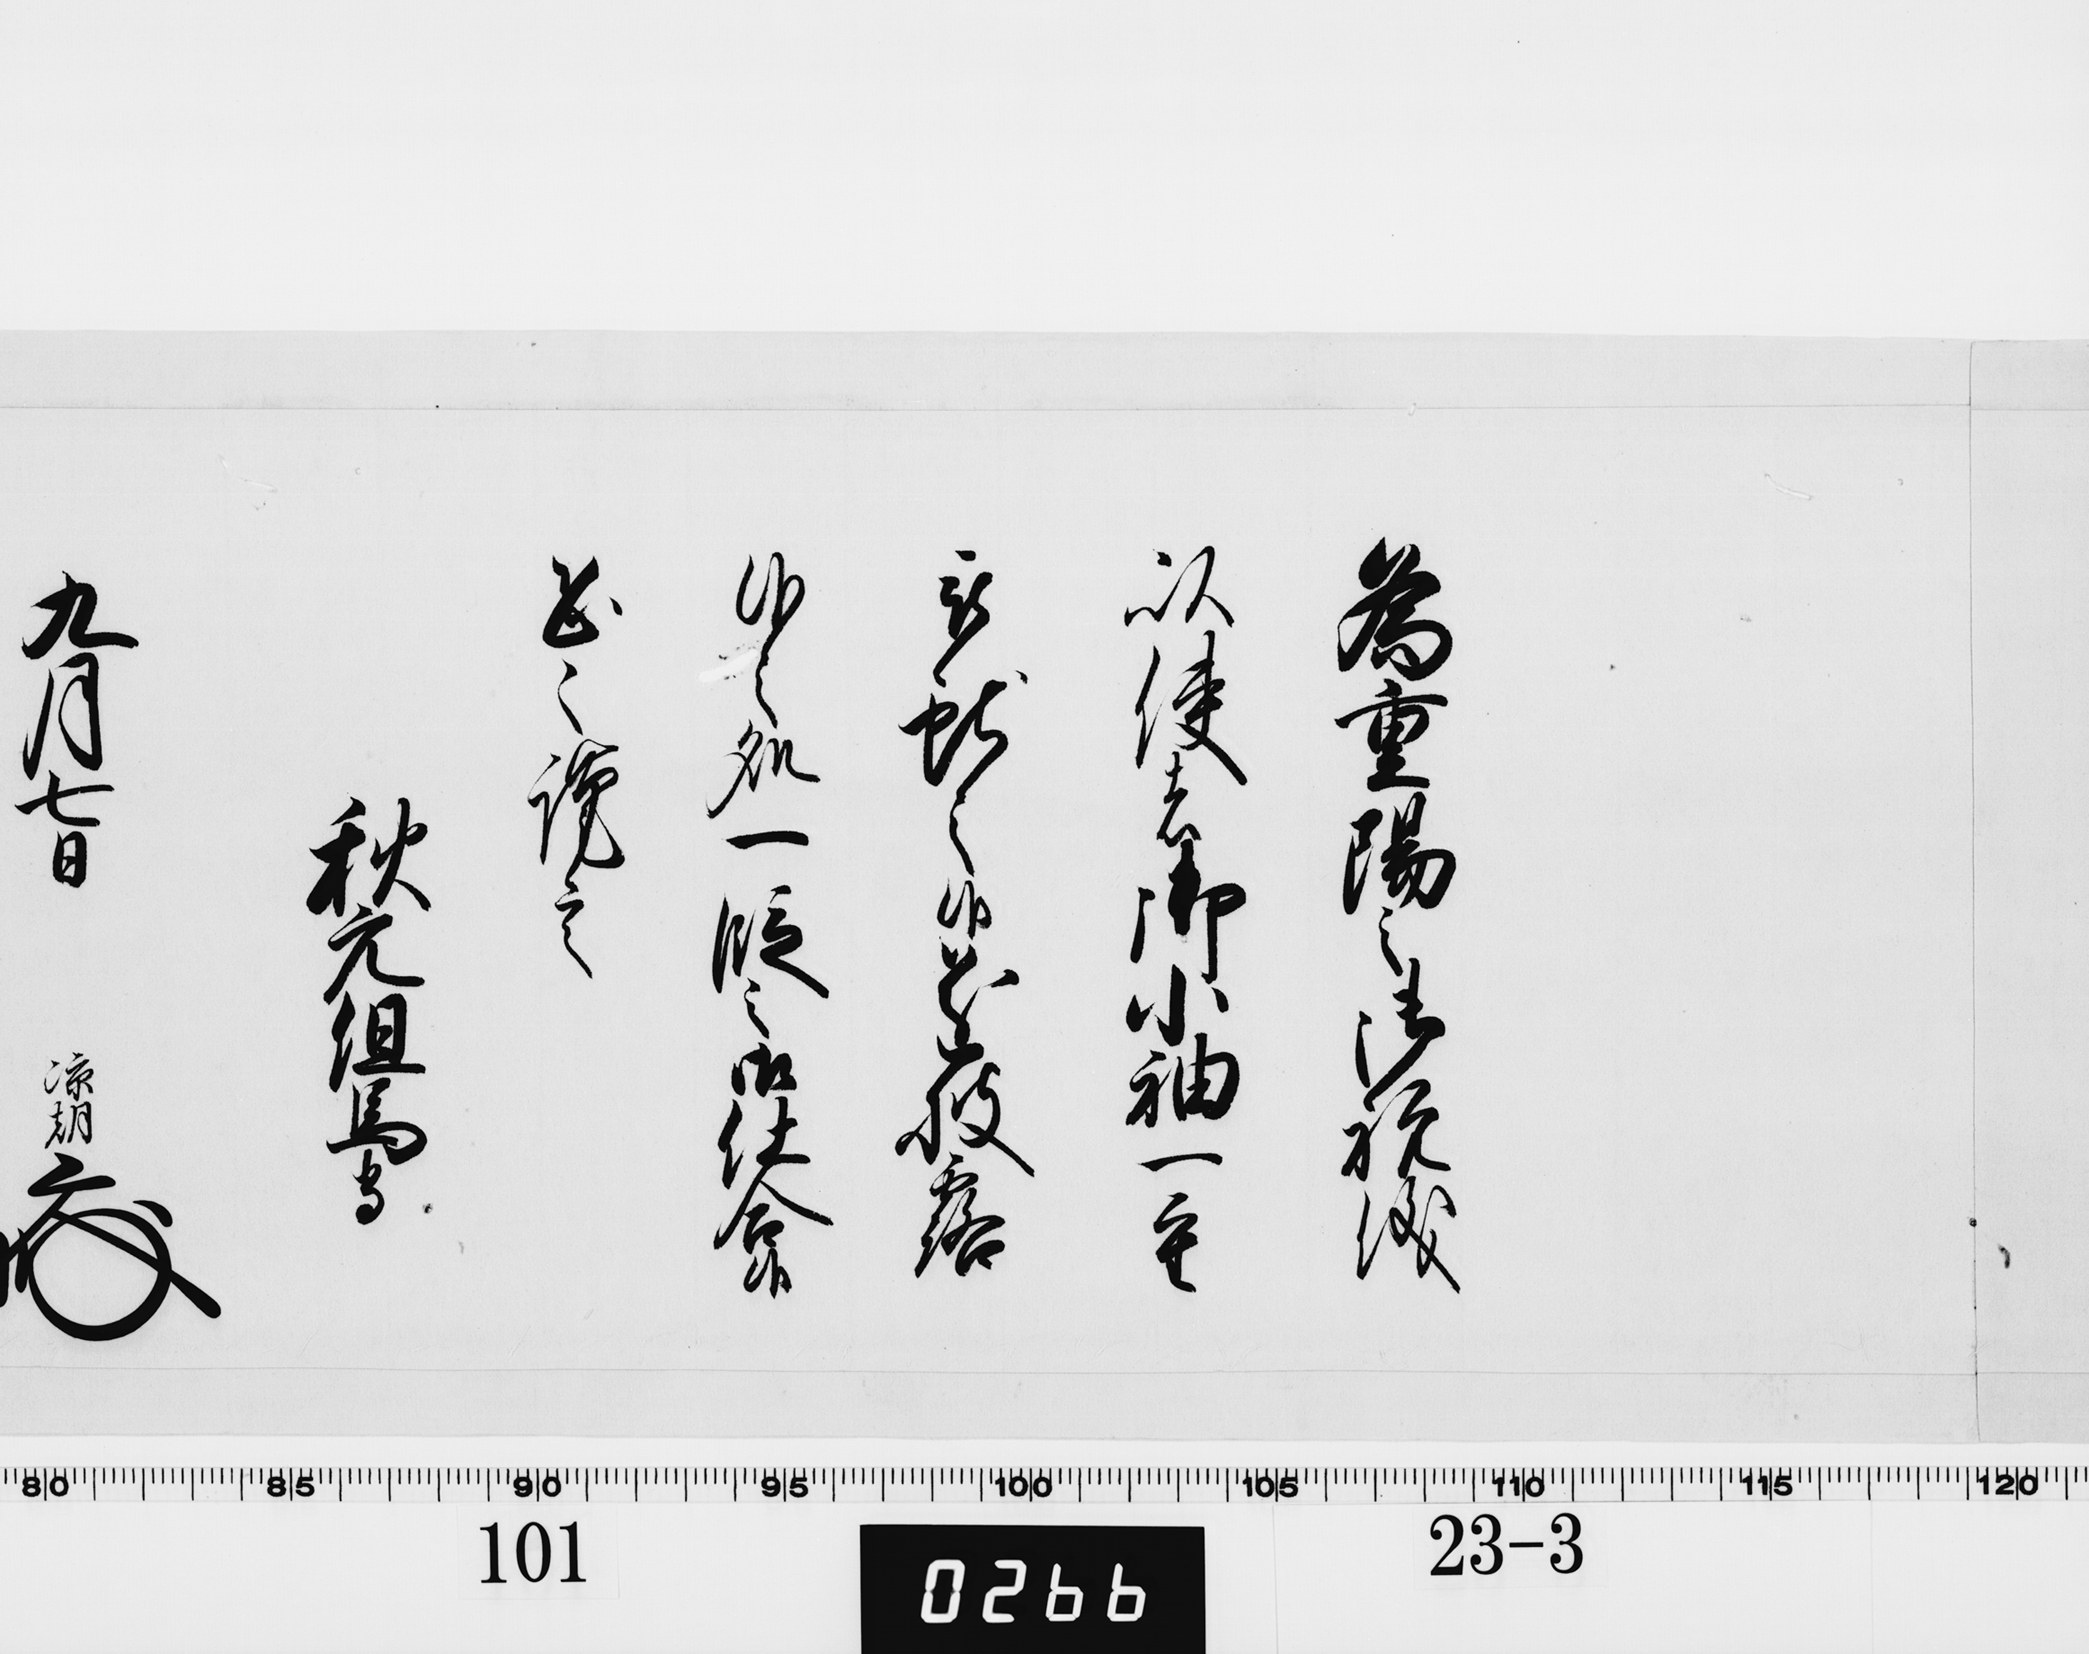 為重陽之御祝儀
以使者御小袖一重
献之候披露
候之処一段之御仕合候
恐々謹言
秋元但馬守
九月七日
涼朝
80 85 90 95 100 105 110 115 120
101
0266
23-3